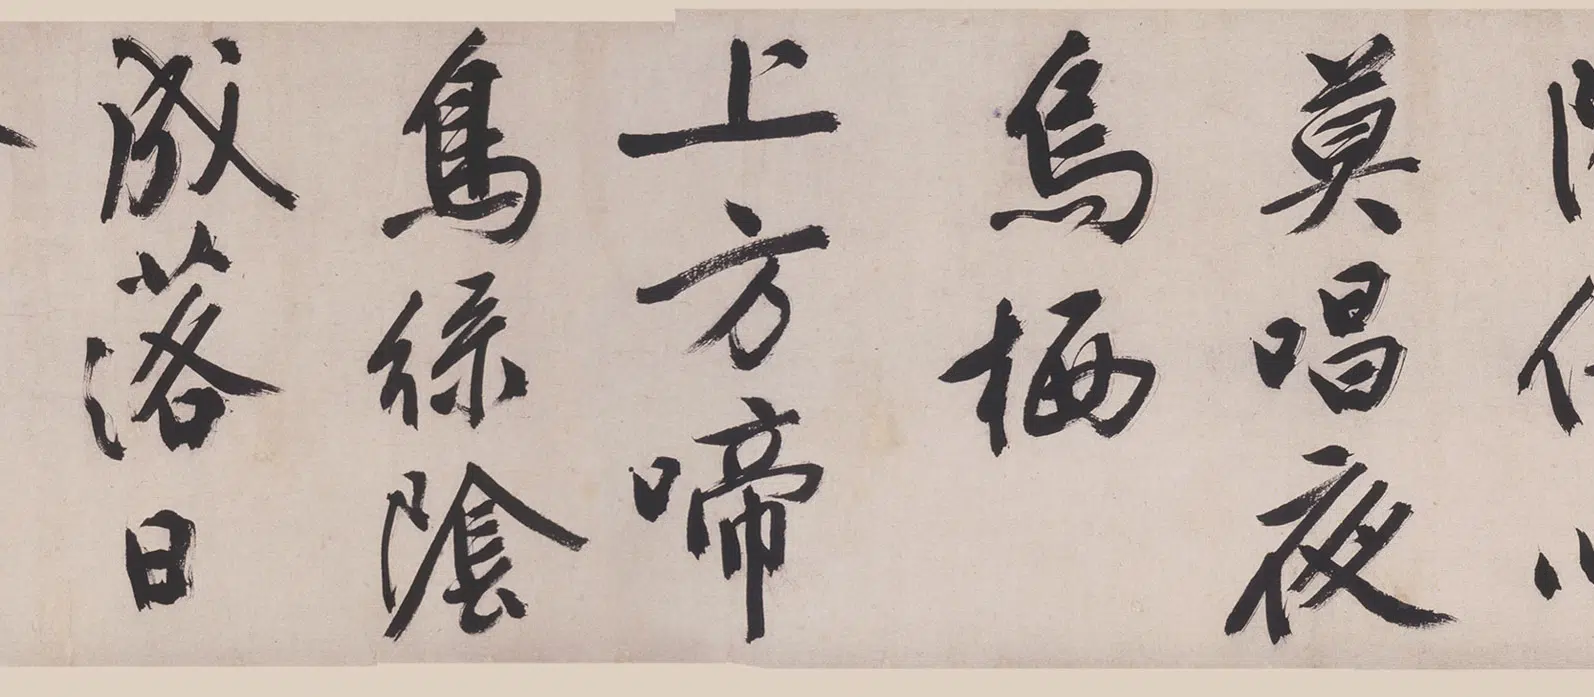 莫唱夜
烏栖
上方啼
鳥綠陰
成落日